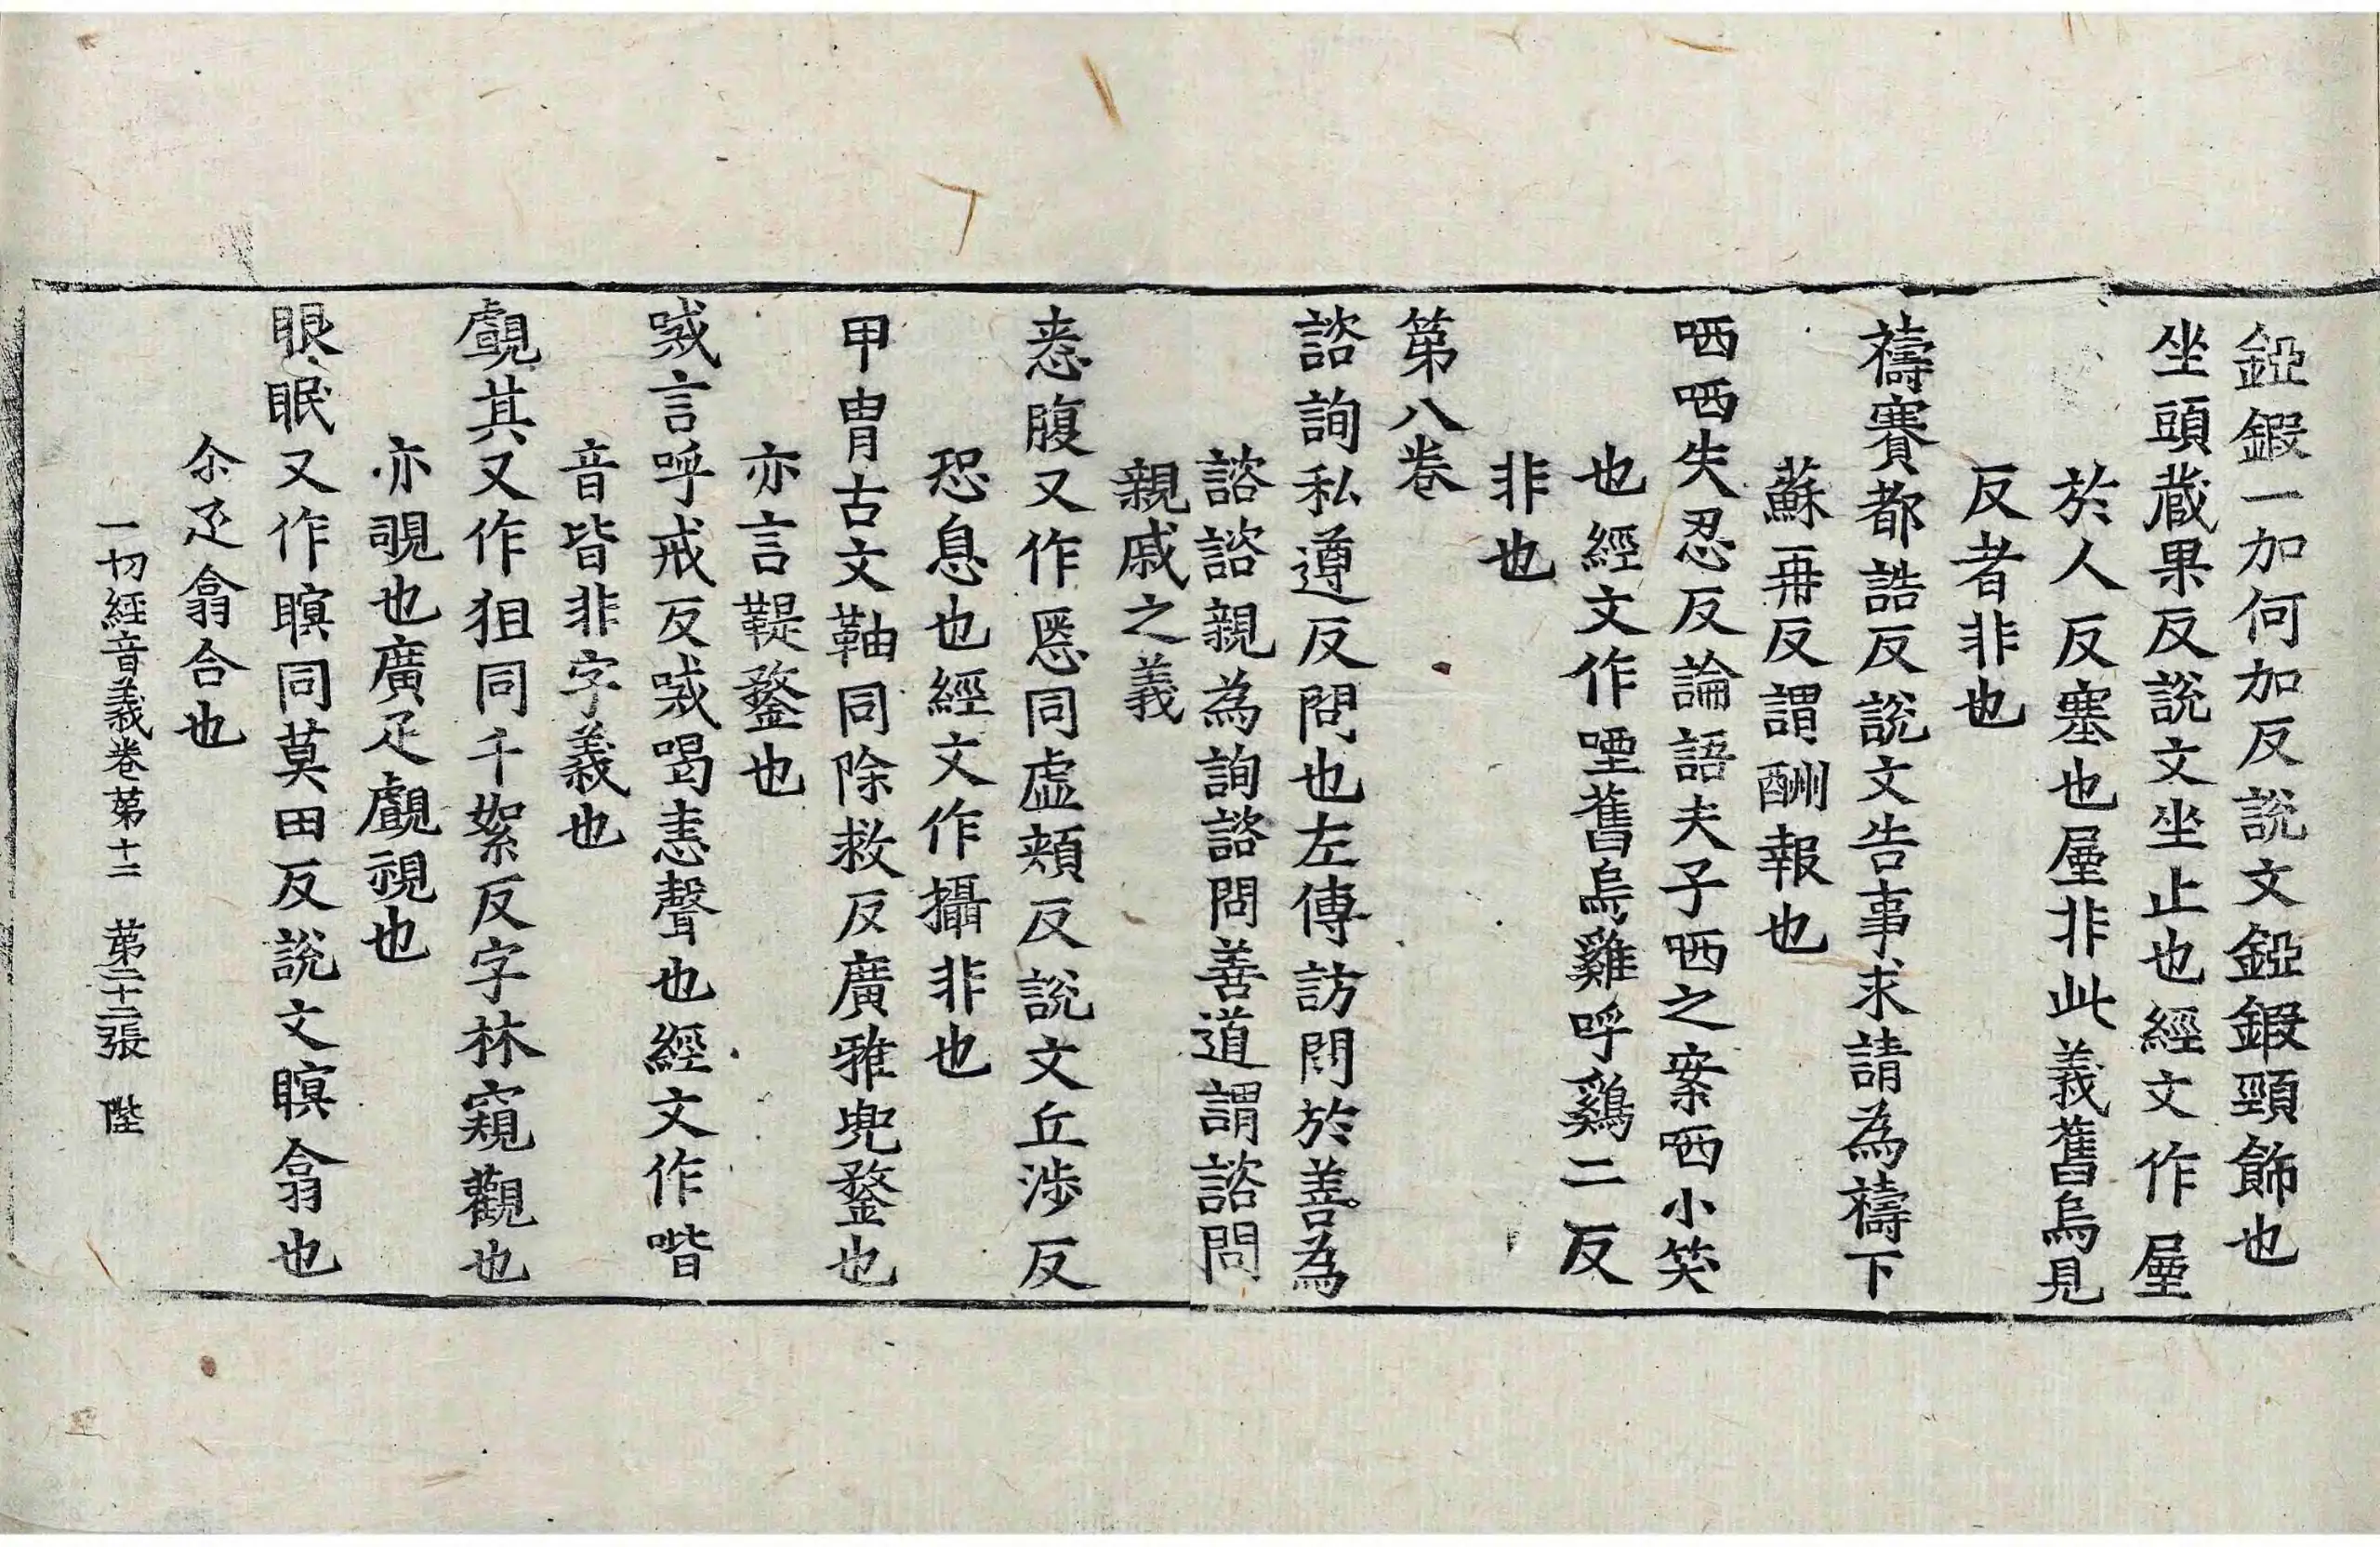 錏鍜一加何加反說文錏鍜頸飾也
坐頭藏果反說文坐止也經文作𡱈
於人反塞也𡱈非此義舊烏見
反者非也
禱賽都誥反說文告事求請為禱下
蘇再反謂酬報也
哂哂失忍反論語夫子哂之案哂小笑
也經文作㖶舊烏雞呼雞二反
非也
第八卷
諮詢私遵反問也左傳訪問於善為
諮諮親為詢諮問善道謂諮問
親戚之義
悘腹又作㥦同虛頰反說文丘涉反
恐息也經文作攝非也
甲胄古文䩜同除救反廣雅兜鍪也
亦言鞮鍪也
喊言呼戒反喊喝恚聲也經文作喈
音皆非字義也
覰其又作狙同千絮反字林窺觀也
亦覗也廣疋覰視也
眼眠又作瞑同莫田反說文瞑翕也
尒疋翕合也
一切經音義卷第十二 第二十二張 陛